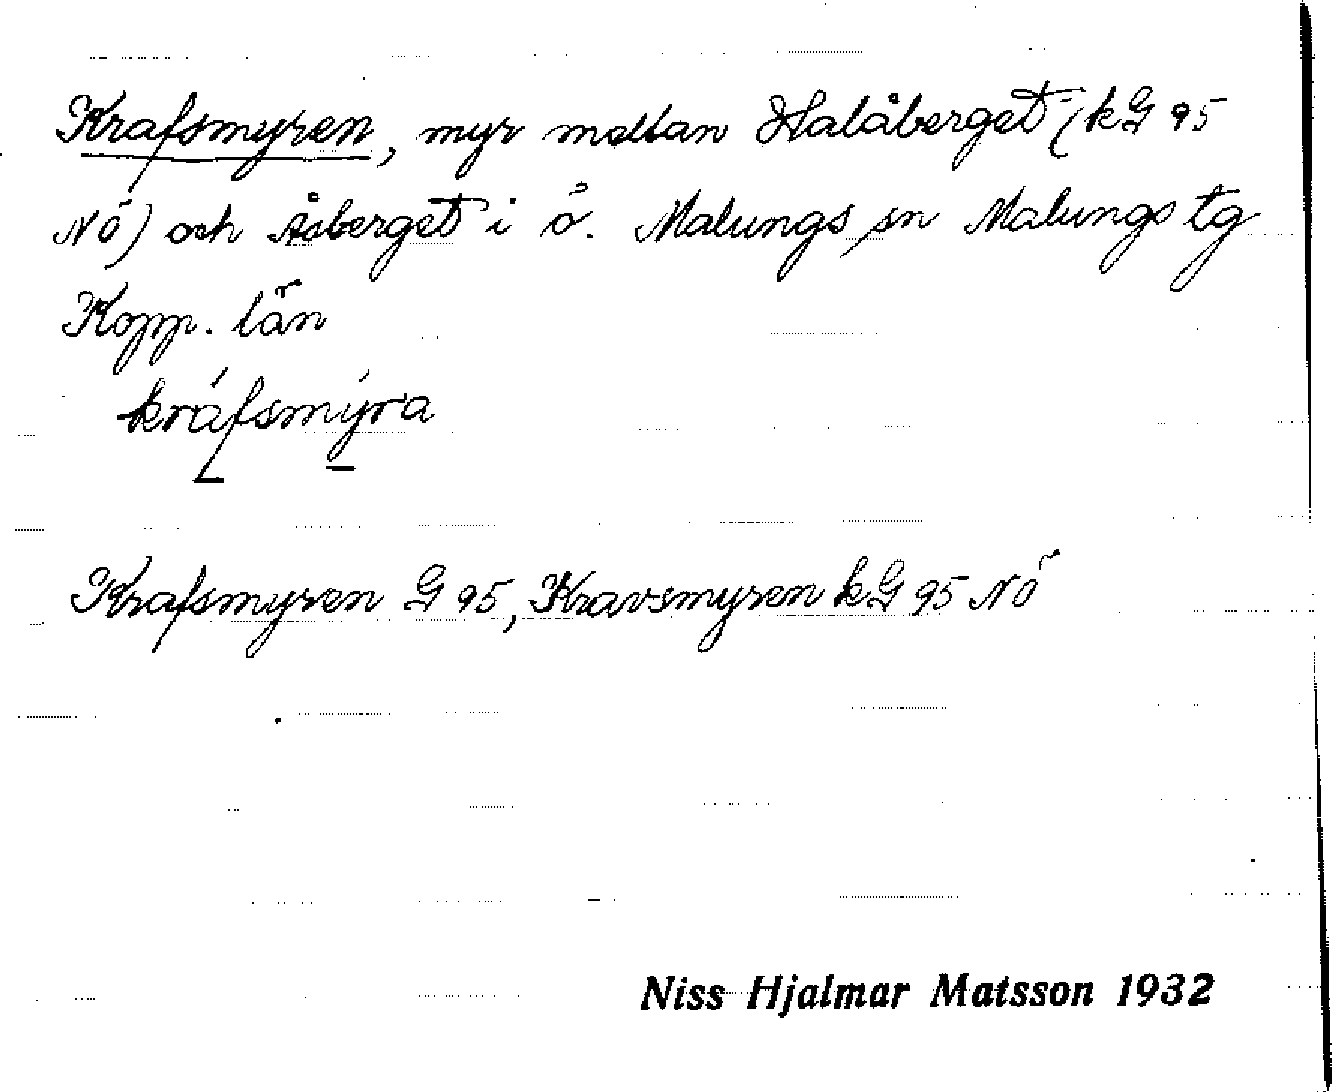 Krafsmyren, myr mellan Halåberget (kG 95
NÖ) och Åsberget i ö. Malungs sn Malungs tg
Kopp. län
kráfsmýra
Krafsmyren G 95, Kravsmyren kG 95 NÖ
Niss Hjalmar Matsson 1932